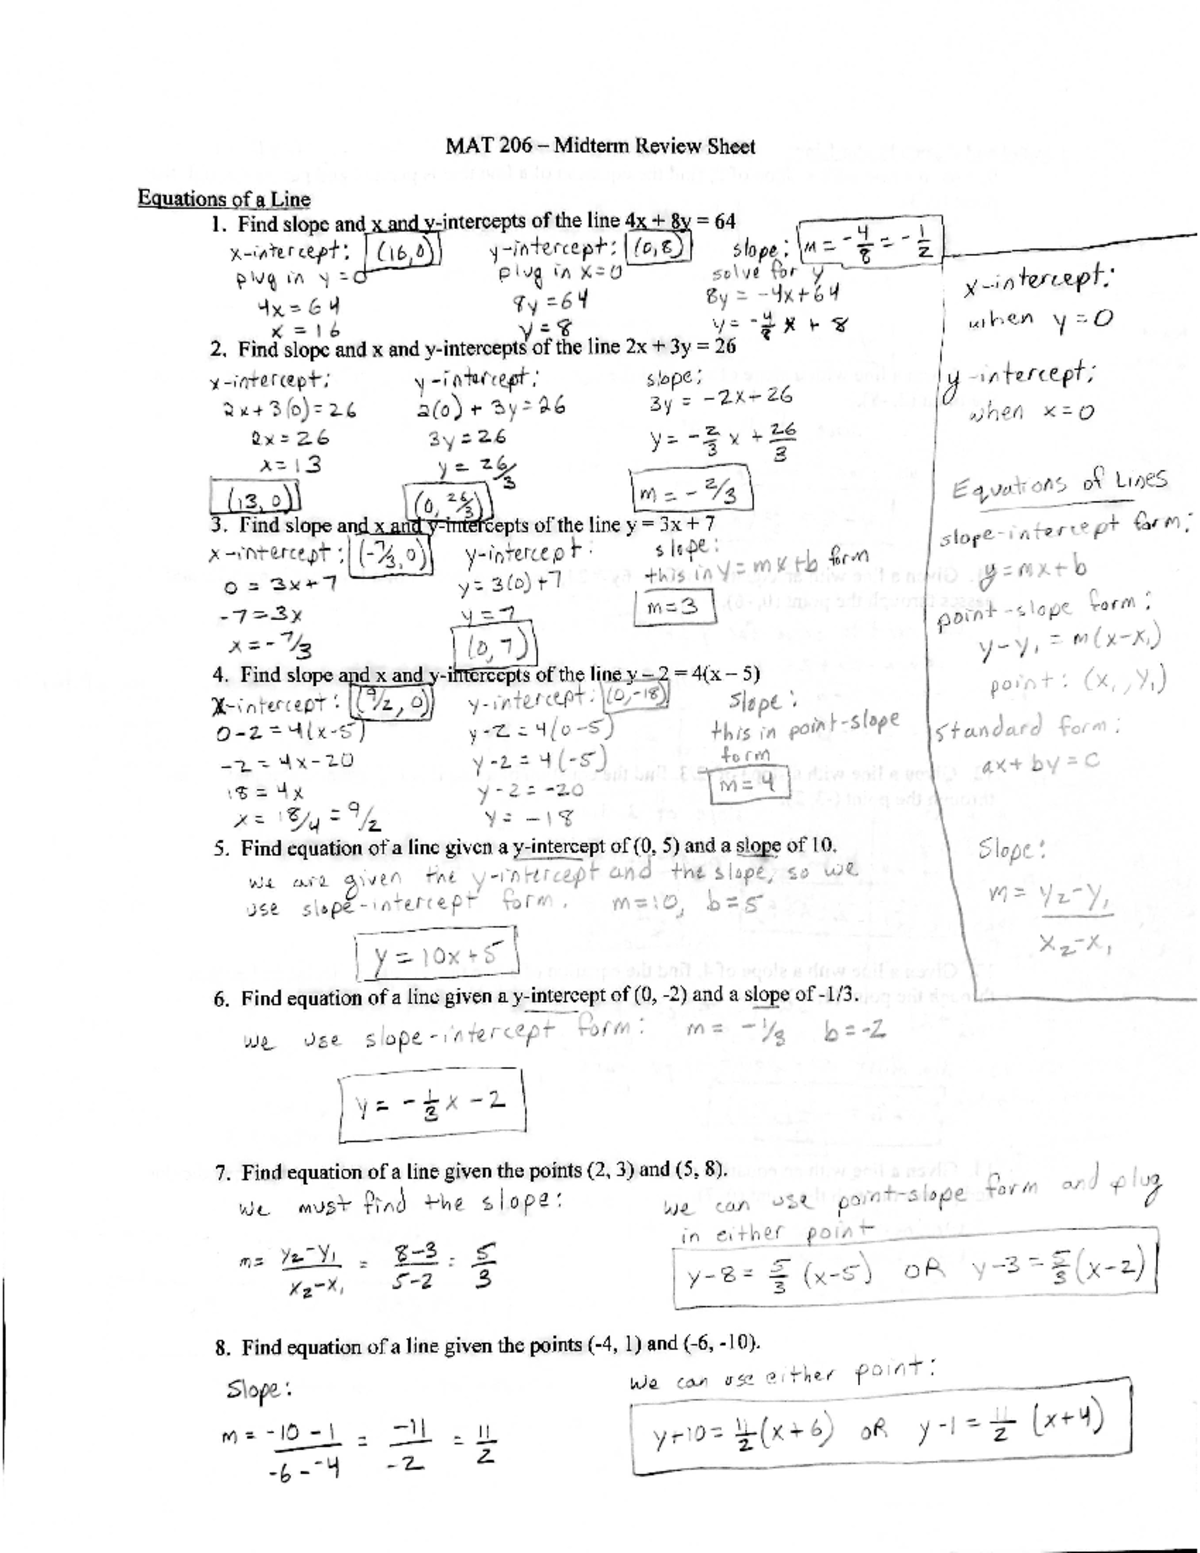 MAT 206 – Midterm Review Sheet
Equations of a Line
1. Find slope and x and y-intercepts of the line 4x + 8y = 64
x-intercept: (16,0) y-intercept: (0,8) slope: m = -4/8 = -1/2
plug in y = 0 plug in x=0 solve for y
4x = 64 8y = 64 8y = -4x+64
x = 16 y = 8 y = -4/8 x + 8
2. Find slope and x and y-intercepts of the line 2x + 3y = 26
x-intercept: y-intercept: slope:
2x+3(0)=26 2(0) + 3y=26 3y = -2x+26
2x = 26 3y = 26 y = -2/3 x + 26/3
x = 13 y = 26/3
(13,0) (0, 26/3) m = -2/3
3. Find slope and x and y-intercepts of the line y = 3x + 7
x-intercept: (-7/3,0) y-intercept: slope:
0 = 3x+7 y=3(0)+7 this in y=mx+b form
-7=3x y=7 m=3
x=-7/3 (0,7)
4. Find slope and x and y-intercepts of the line y – 2 = 4(x – 5)
x-intercept: (9/2, 0) y-intercept: (0,-18) slope:
0-2=4(x-5) y-2=4(0-5) this in point-slope
-2 = 4x-20 y-2=4(-5) form
18 = 4x y-2=-20 m=4
x = 18/4 = 9/2 y = -18
5. Find equation of a line given a y-intercept of (0, 5) and a slope of 10.
we are given the y-intercept and the slope, so we
use slope-intercept form. m=10, b=5
y = 10x+5
6. Find equation of a line given a y-intercept of (0, -2) and a slope of -1/3.
we use slope-intercept form: m = -1/3 b = -2
y = -1/3 x - 2
7. Find equation of a line given the points (2, 3) and (5, 8).
we must find the slope: we can use point-slope form and plug
in either point
m= y2-y1/x2-x1 = 8-3/5-2 = 5/3 y-8 = 5/3 (x-5) OR y-3 = 5/3 (x-2)
8. Find equation of a line given the points (-4, 1) and (-6, -10).
Slope: we can use either point:
m = -10-1/-6--4 = -11/-2 = 11/2 y+10 = 11/2 (x+6) OR y-1 = 11/2 (x+4)
x-intercept:
when y=0
y-intercept:
when x=0
Equations of Lines
slope-intercept form:
y=mx+b
point-slope form:
y-y1 = m(x-x1)
point: (x1,y1)
standard form:
ax+by=c
Slope:
m = y2-y1
x2-x1